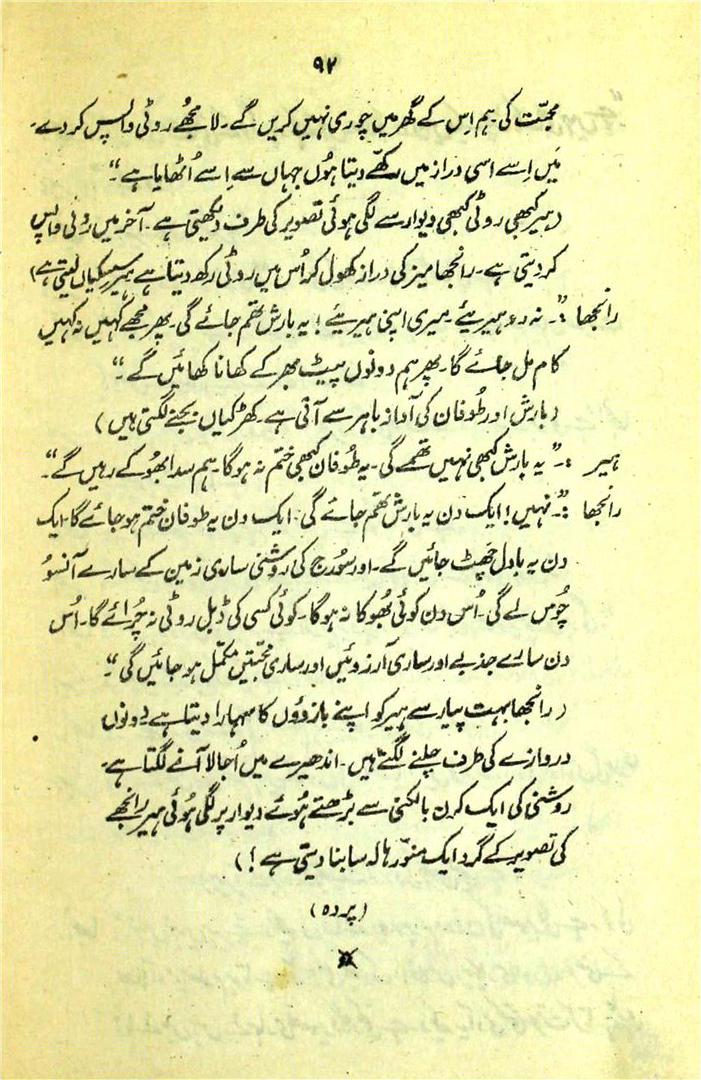 ۹۲
محبّت کی ہم اِس کے گھر میں چوری نہیں کریں گے۔ لا مجھُے روٹی واپس کر دے۔
مَیں اِسے اسی دراز میں رکھّے دیتا ہوُں جہاں سے اِسے اُٹھایا ہے“
(ہیر کبھی روٹی کبھی دیوار سے لگی ہوئی تصویر کی طرف دیکھتی ہے۔ آخر میں روٹی واپس
کر دیتی ہے۔ رانجھا میز کی دراز کھول کر اُس میں روٹی رکھ دیتا ہے ہیر سسکیاں لیتی ہے)
رانجھا :۔ ”نہ رو ہیریئے۔ میری اپنی ہیریئے! یہ بارش تھم جائے گی۔ پھر مجھے کہیں نہ کہیں
کام مل جائے گا۔ پھر ہم دونوں پیٹ بھر کے کھانا کھائیں گے۔“
(بارش اور طُوفان کی آواز باہر سے آتی ہے۔ کھڑکیاں بجنے لگتی ہیں)
ہیر :۔ ”یہ بارش کبھی نہیں تھمے گی۔ یہ طُوفان کبھی ختم نہ ہوگا۔ ہم سدا بھُوکے رہیں گے“۔
رانجھا :۔ ”نہیں! ایک دن یہ بارش تھم جائے گی۔ ایک دن یہ طوفان ختم ہو جائے گا۔ ایک
دن یہ بادل چھَٹ جائیں گے۔ اور سوُرج کی روشنی ساری زمین کے سارے آنسوُ
چوُس لے گی۔ اُس دن کوئی بھُوکا نہ ہوگا۔ کوئی کسی کی ڈبل روٹی نہ چُرائے گا۔ اُس
دن سارے جذبے اور ساری آرزوئیں اور ساری محبّتیں مکمّل ہو جائیں گی“۔
(رانجھا بہت پیار سے ہیر کو اپنے بازوؤں کا سہارا دیتا ہے دونوں
دروازے کی طرف چلنے لگتے ہیں۔ اندھیرے میں اُجالا آنے لگتا ہے۔
روشنی کی ایک کرن بالکنی سے بڑھتے ہوُئے دیوار پر لگی ہوُئی ہیر رانجھے
کی تصویر کے گرد ایک منوّر ہالہ سا بنا دیتی ہے!)
(پردہ)